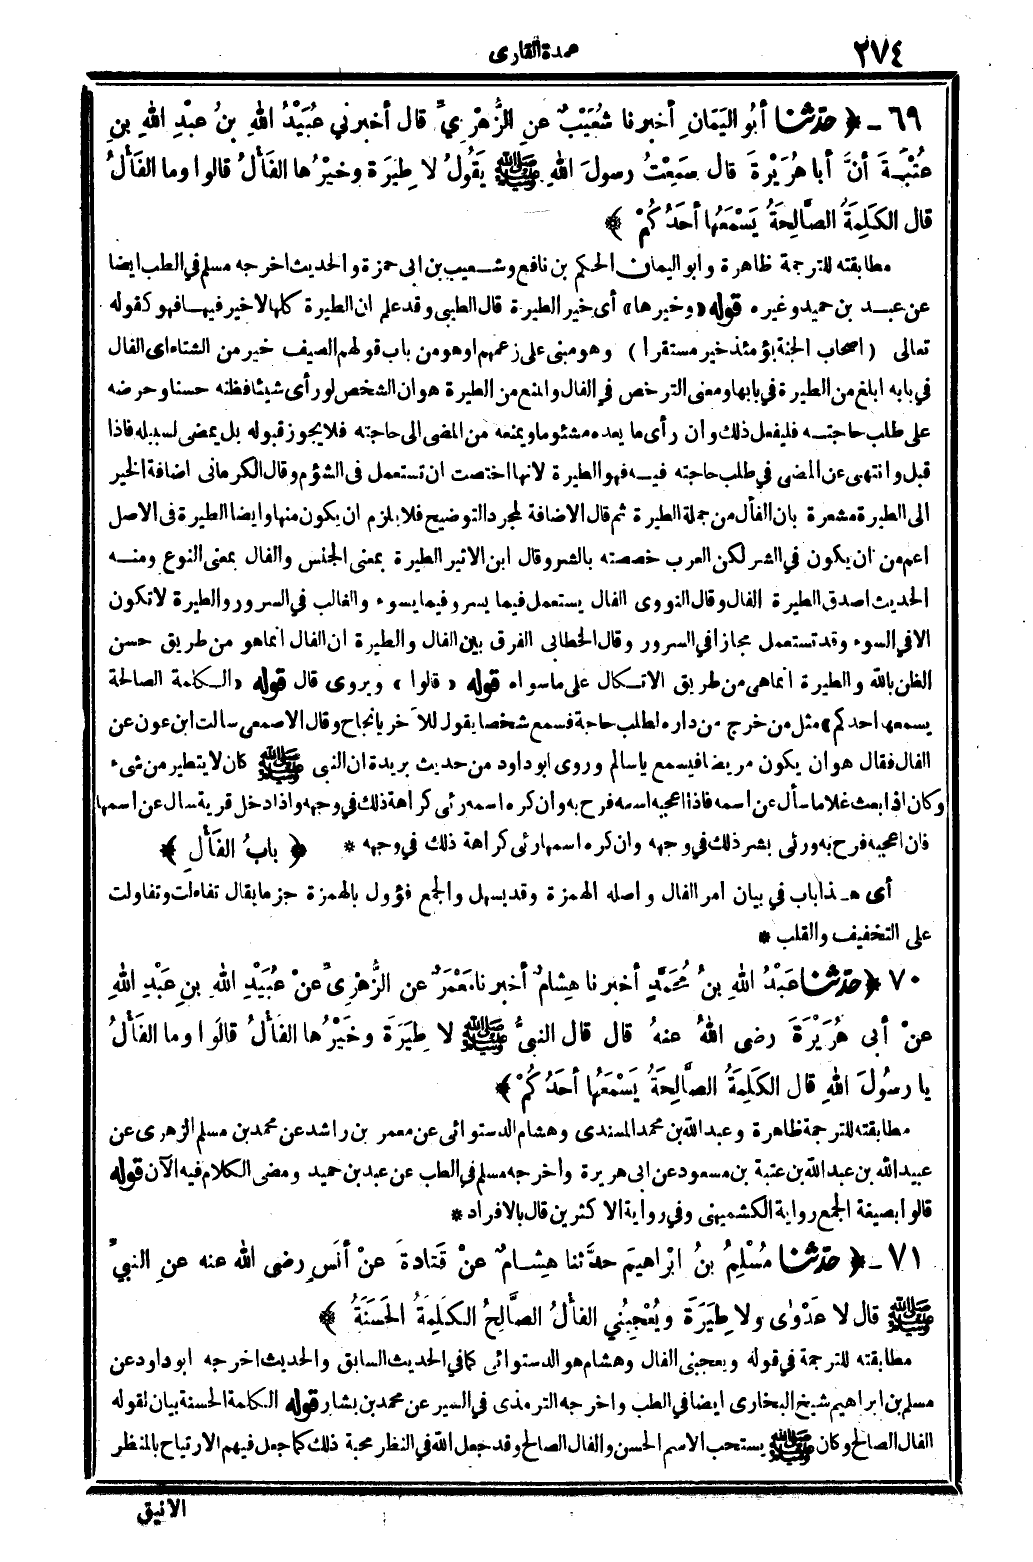 ٢٧٤
عمدة القارى
٦٩ ـ ﴿ حدّثنا أبُو اليَمَانِ أخبرنا شُعَيْبٌ عنِ الزُّهْرِيِّ قال أخبرني عُبَيْدُ اللهِ بنُ عبْدِ اللهِ بنِ
عُتْبَـةَ أنَّ أباهُرَيْرةَ قال سَمِعْتُ رسولَ اللهِ ﷺ يَقُولُ لا طِيَرَة وخيْرُها الفَألُ قالوا وما الفَألُ
قال الكَلِمَةُ الصَّالِحَةُ يَسْمَعُها أحَدُكُمْ ﴾
مطابقته للترجمة ظاهرة وابو اليمان الحكم بن نافع وشعيب بن ابى حمزة والحديث اخرجه مسلم في الطب ايضا
عن عبد بن حميد وغيره قوله «وخيرها» أى خير الطيرة قال الطيبى وقد علم ان الطيرة كلها لاخير فيها فهو كقوله
تعالى (اصحاب الجنة يؤمئذ خير مستقرا) وهو مبنى على زعمهم اوهو من باب قولهم الصيف خير من الشتاء اى الفال
في بابه ابلغ من الطيرة في بابها ومعنى الترخص في الفال والمنع من الطيرة هو ان الشخص لو رأى شيئا فظنه حسنا وحرضه
على طلب حاجتـه فليفعل ذلك وان رأى ما يعده مشئوما ويمنعه من المضى الى حاجته فلا يجوز قبوله بل يمضى لسبيله فاذا
قبل وانتهى عن المضى في طلب حاجته فيـه فهو الطيرة لانها اختصت ان تستعمل فى الشؤم وقال الكرمانى اضافة الخير
الى الطيرة مشعرة بان الفأل من جملة الطيرة ثم قال الاضافة لمجرد التوضيح فلا يلزم ان يكون منها وايضا الطيرة فى الاصل
اعم من ان يكون في الشر لكن العرب خصصته بالشر وقال ابن الاثير الطيرة بمعنى الجنس والفال بمعنى النوع ومنـه
الحديث اصدق الطيرة الفال وقال النووى الفال يستعمل فيما يسر وفيما يسوء والغالب في السرور والطيرة لا تكون
الا في السوء وقد تستعمل مجازا في السرور وقال الخطابى الفرق بين الفال والطيرة ان الفال انما هو من طريق حسن
الظن بالله والطيرة انما هى من طريق الاتـكال على ما سواه قوله «قالوا» ويروى قال قوله «الـكلمة الصالحة
يسمعها احدكم» مثل من خرج من داره لطلب حاجة فسمع شخصا يقول للآخر يا نجاح وقال الاصمعى سالت ابن عون عن
الفال فقال هو ان يكون مريضا فيسمع يا سالم وروى ابو داود من حديث بريدة ان النبى ﷺ كان لا يتطير من شىء
وكان اذا بعث غلاما سأل عن اسمه فاذا اعجبه اسمه فرح به وان كره اسمه رئى كراهة ذلك في وجهه واذا دخل قرية سال عن اسمها
فان اعجبه فرح به ورئى بشر ذلك في وجهه وان كره اسمها رئى كراهة ذلك في وجهه * ﴿ بابُ الفَألِ ﴾
أى هـذا باب في بيان امر الفال واصله الهمزة وقد يسهل والجمع فؤول بالهمزة جزما يقال تفاءلت وتفاولت
على التخفيف والقلب *
٧٠ ﴿ حدّثنا عَبْدُ اللهِ بنُ مُحَمَّدٍ أخبرنا هِشامٌ أخبرنا مَعْمَرٌ عنِ الزُّهْرِىِّ عنْ عُبَيْدِ اللهِ بنِ عَبْدِ اللهِ
عنْ أبى هُرَيْرَةَ رضى اللهُ عنهُ قال قال النبيُّ ﷺ لا طِيَرَةَ وخَيْرُها الفَألُ قالُوا وما الفَألُ
يا رسُولَ اللهِ قال الكَلِمَةُ الصَّالِحَةُ يَسْمَعُها أحَدُكُمْ ﴾
مطابقته للترجمة ظاهرة وعبد الله بن محمد المسندى وهشام الدستوائى عن معمر بن راشد عن محمد بن مسلم الزهرى عن
عبيد الله بن عبد الله بن عتبة بن مسعود عن ابى هريرة واخرجه مسلم في الطب عن عبد بن حميد ومضى الكلام فيه الآن قوله
قالوا بصيغة الجمع رواية الكشميهنى وفي رواية الاكثرين قال بالافراد *
٧١ ـ ﴿ حدّثنا مُسْلِمُ بنُ ابْراهِيمَ حدَّثنا هِشـامٌ عنْ قَتادةَ عنْ أنَسٍ رضى الله عنه عنِ النبيِّ
ﷺ قال لا عَدْوٰى ولا طِيَرَةَ ويُعْجِبُني الفألُ الصَّالِحُ الـكَلِمَةُ الحَسَنَةُ ﴾
مطابقته للترجمة في قوله ويعجبنى الفال وهشام هو الدستوائى كما في الحديث السابق والحديث اخرجه ابو داود عن
مسلم بن ابراهيم شيخ البخارى ايضا في الطب واخرجه الترمذى في السير عن محمد بن بشار قوله الـكلمة الحسنة بيان لقوله
الفال الصالح وكان ﷺ يستحب الاسم الحسن والفال الصالح وقد جعل الله في النظر محبة ذلك كما جعل فيهم الارتياح بالمنظر
الانيق